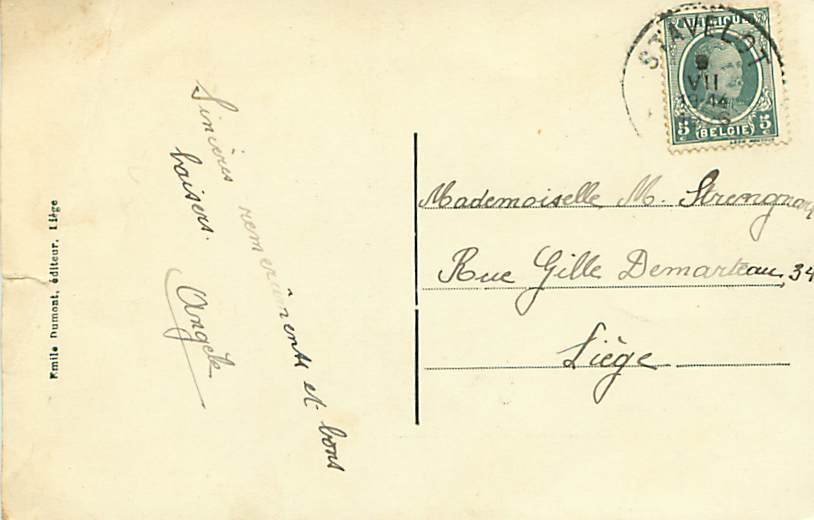 Emile Dumont, éditeur, Liège
Sincères remerciments et bons
baisers.
Angèle
STAVELOT
9
VII
5 (BELGIE) 5
Mademoiselle M.
Rue Gille Demarteau, 34
Liège